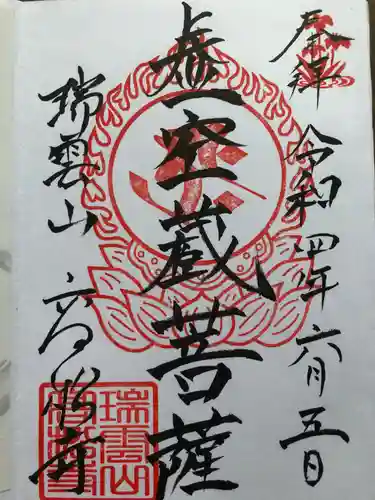 奉拝
令和四年六月五日
虚空蔵菩薩
瑞雲山
寺
瑞雲山